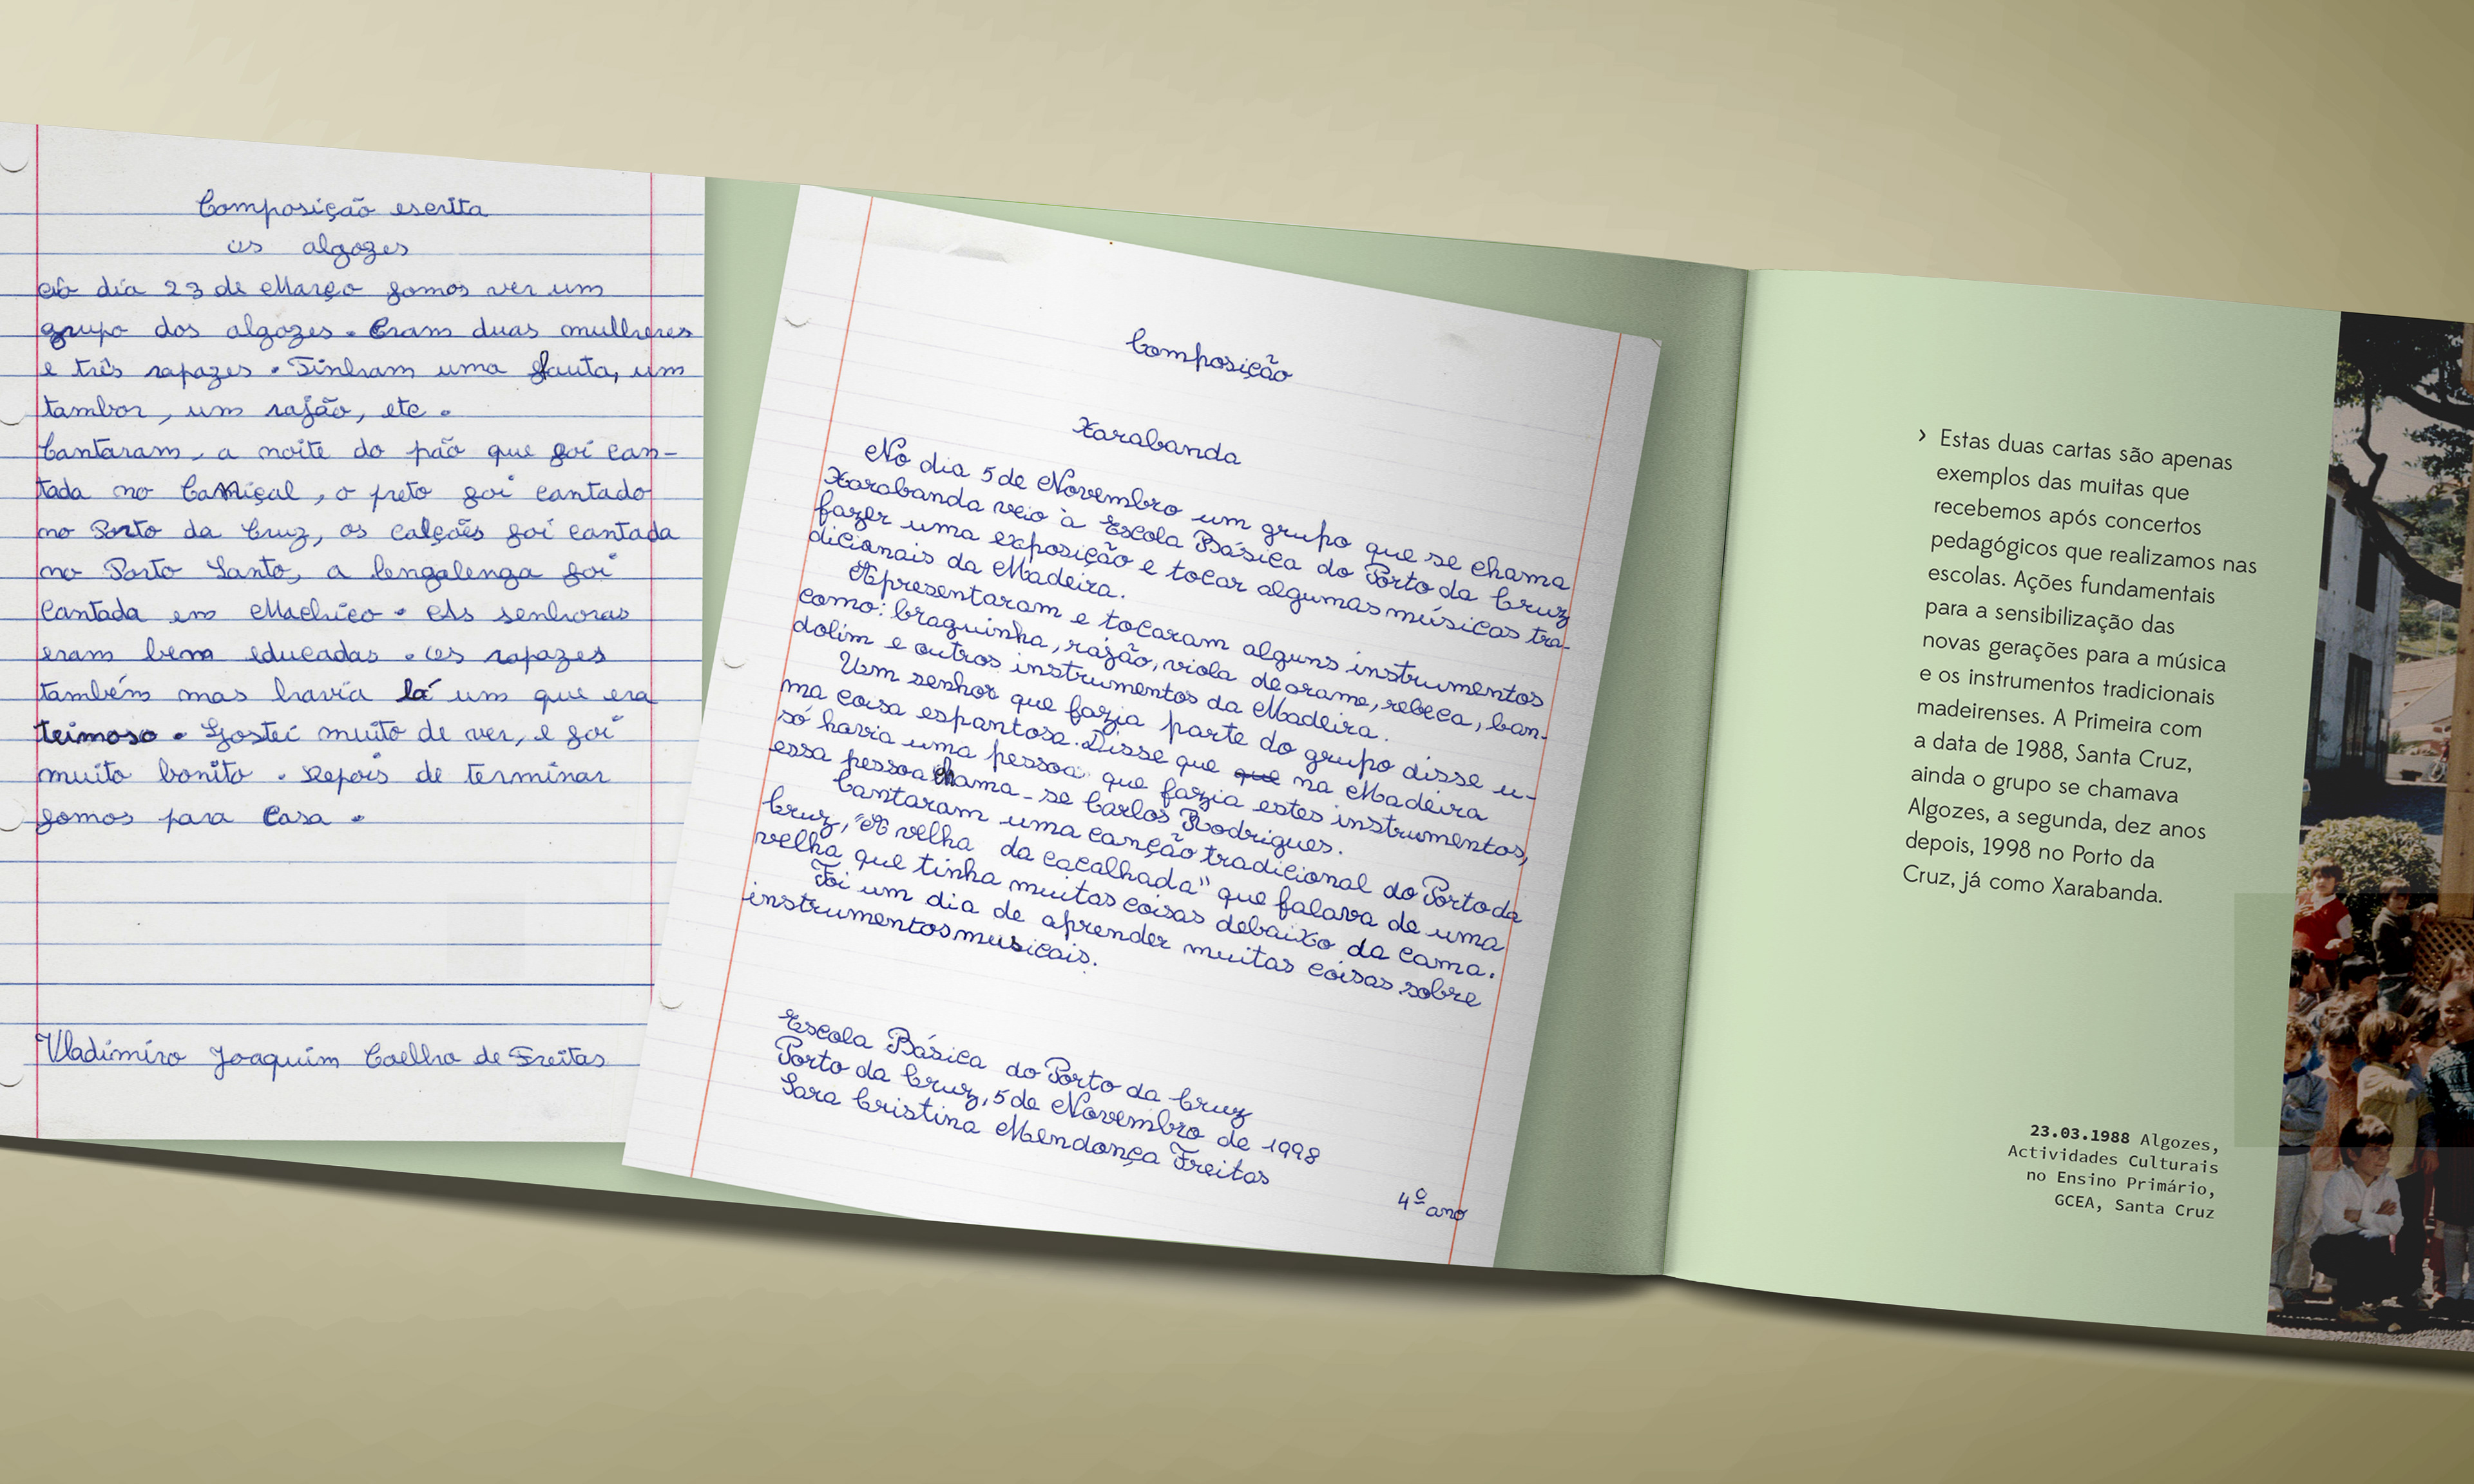 Composição escrita
os algozes
No dia 23 de Março fomos ver um
grupo dos algozes. Eram duas mulheres
e três rapazes. Tinham uma flauta, um
tambor, um rajão, etc.
Cantaram, a noite do pão que foi can-
tada no Caniçal, o preto foi cantado
no Porto da Cruz, os calções foi cantada
no Porto Santo, a lengalenga foi
cantada em Machico. As senhoras
eram bem educadas. Os rapazes
também mas havia lá um que era
teimoso. Gostei muito de ver, e foi
muito bonito. Depois de terminar
fomos para casa.
Vladimiro Joaquim Coelho de Freitas
Composição
Xarabanda
No dia 5 de Novembro um grupo que se chama
Xarabanda veio à Escola Básica do Porto da Cruz
fazer uma exposição e tocar algumas músicas tra-
dicionais da Madeira.
Apresentaram e tocaram alguns instrumentos
como: braguinha, rajão, viola de arame, rebeca, ban-
dolim e outros instrumentos da Madeira.
Um senhor que fazia parte do grupo disse u-
ma coisa espantosa. Disse que que na Madeira
só havia uma pessoa que fazia estes instrumentos,
essa pessoa chama-se Carlos Rodrigues.
Cantaram uma canção tradicional do Porto da
Cruz, "A velha da cacalhada" que falava de uma
velha que tinha muitas coisas debaixo da cama.
Foi um dia de aprender muitas coisas sobre
instrumentos musicais.
Escola Básica do Porto da Cruz
Porto da Cruz, 5 de Novembro de 1998
Sara Cristina Mendonça Freitas
4º ano
› Estas duas cartas são apenas
exemplos das muitas que
recebemos após concertos
pedagógicos que realizamos nas
escolas. Ações fundamentais
para a sensibilização das
novas gerações para a música
e os instrumentos tradicionais
madeirenses. A Primeira com
a data de 1988, Santa Cruz,
ainda o grupo se chamava
Algozes, a segunda, dez anos
depois, 1998 no Porto da
Cruz, já como Xarabanda.
23.03.1988 Algozes,
Actividades Culturais
no Ensino Primário,
GCEA, Santa Cruz